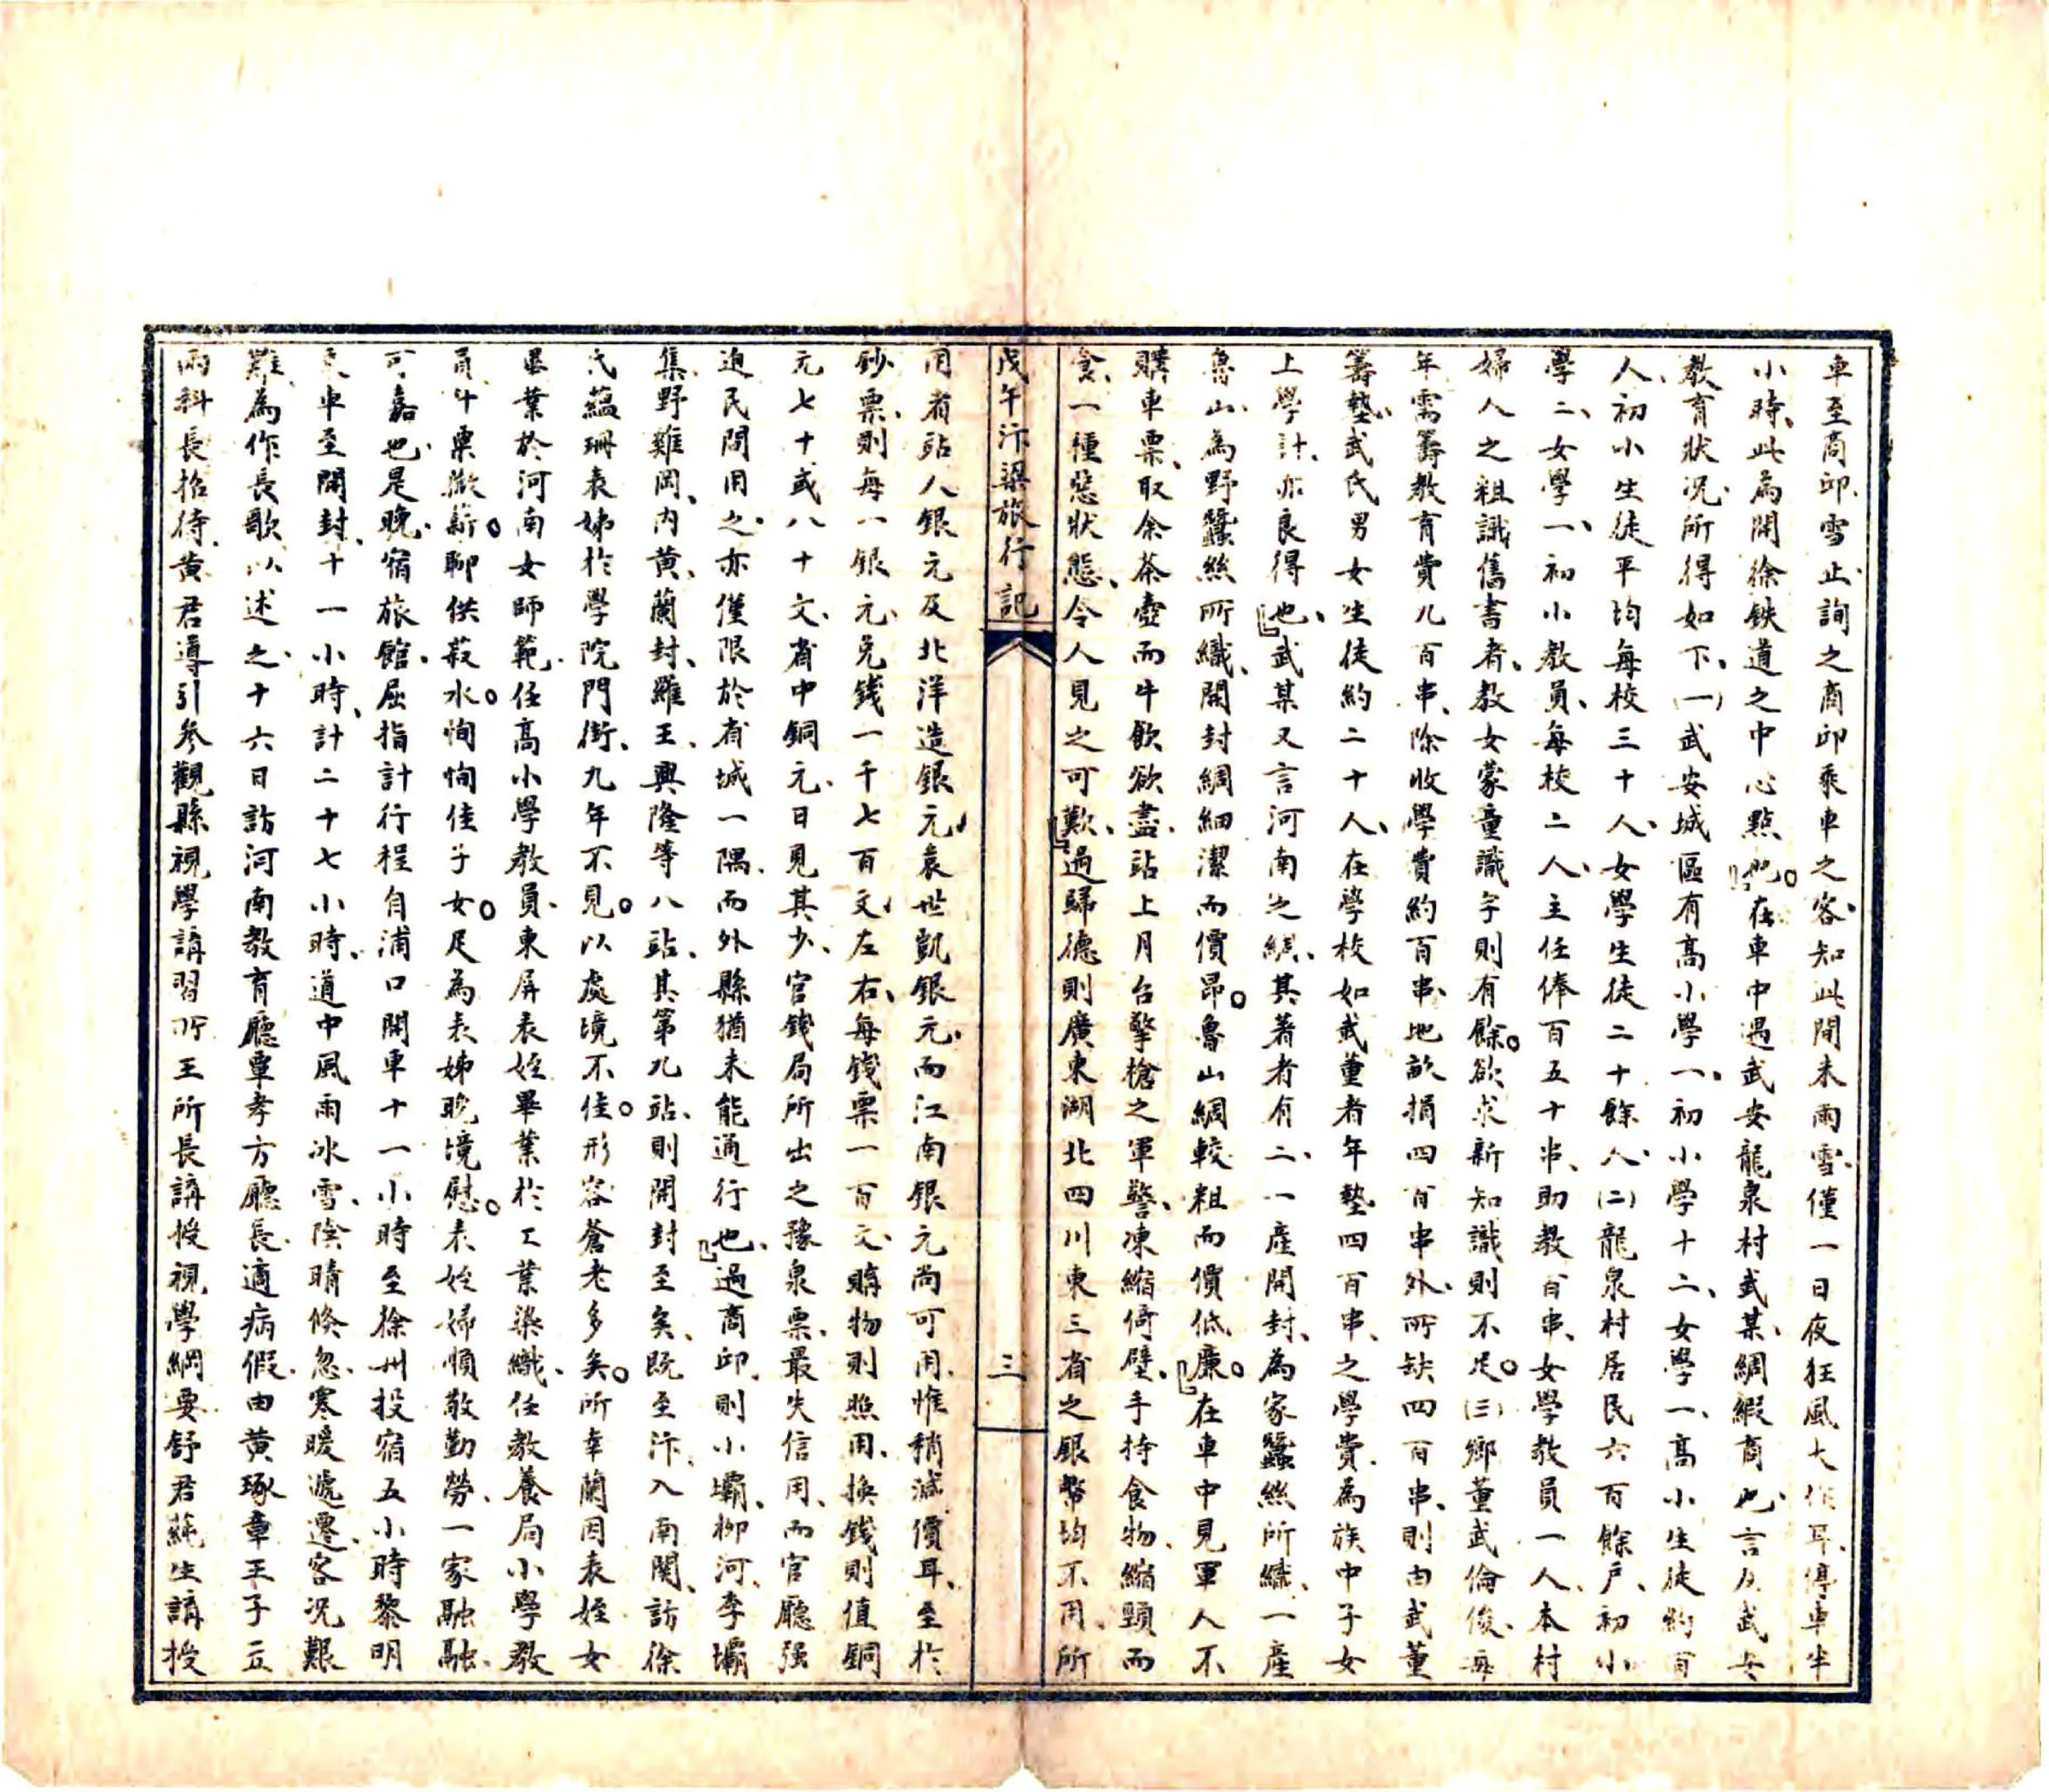 車至商邱、雪止、詢之商邱乘車之客、知此間未雨雪、僅一日夜狂風大作耳、停車半
小時、此為開徐鉄道之中心點也。在車中遇武安龍泉村武某、綢緞商也、言及武安
教育狀況、所得如下、(一)武安城區有高小學一、初小學十二、女學一、高小生徒約百
人、初小生徒平均每校三十人、女學生徒二十餘人、(二)龍泉村居民六百餘戶、初小
學二、女學一、初小教員、每校二人、主任俸百五十串、助教百串、女學教員一人、本村
婦人之粗識舊書者、教女蒙童識字則有餘。欲求新知識則不足。(三)鄉董武倫俊、每
年需籌教育費九百串、除收學費約百串、地畝捐四百串外、所缺四百串、則由武董
籌墊、武氏男女生徒約二十人、在學校如武董者年墊四百串、之學費、為族中子女
上學計、亦良得也、武某又言河南之綢、其著者有二、一產開封、為家蠶絲所織、一產
魯山、為野蠶絲所織、開封綢細潔而價昂。魯山綢較粗而價低廉。在車中見軍人不
購車票、取余茶壺而牛飲欲盡、站上月台擎槍之軍警、凍縮倚壁、手持食物、縮頸而
食、一種惡狀態、令人見之可歎、過歸德則廣東湖北四川東三省之銀幣均不用、所
戊午汴梁旅行記
三
用者站人銀元及北洋造銀元、袁世凱銀元、而江南銀元尚可用、惟稍減價耳、至於
鈔票、則每一銀元、兌錢一千七百文左右、每錢票一百文、購物則照用、換錢則值銅
元七十或八十文、省中銅元、日見其少、官錢局所出之豫泉票、最失信用、而官廳强
迫民間用之、亦僅限於省城一隅、而外縣猶未能通行也、過商邱、則小壩、柳河、李壩
集、野雞岡、內黃、蘭封、羅王、興隆等八站、其第九站、則開封至矣、既至汴、入南關、訪徐
氏蘊珊表姊於學院門街、九年不見。以處境不佳。形容蒼老多矣。所幸蘭因表姪女
畢業於河南女師範、任高小學教員、東屏表姪畢業於工業染織、任教養局小學教
員、斗粟獻薪。聊供菽水。恂恂佳子女。足為表姊晚境慰。表姪婦順敬勤勞、一家融融、
可嘉也、是晚、宿旅館、屈指計行程自浦口開車十一小時至徐州投宿五小時黎明
車至開封、十一小時、計二十七小時、道中風雨冰雪、陰晴倏忽、寒暖遞遷、客況艱
難、為作長歌以述之、十六日訪河南教育廳覃孝方廳長、適病假、由黃琢章王子立
兩科長招待、黃君導引參觀縣視學講習所王所長講授視學綱要舒君蘇生講授